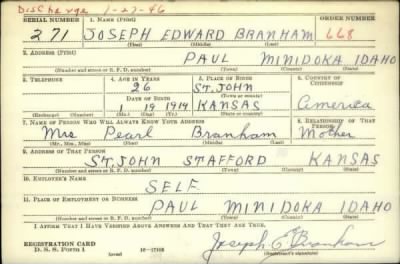 Discharge 1-27-46
SERIAL NUMBER 1. NAME (Print) ORDER NUMBER
271 JOSEPH EDWARD BRANHAM 668
(First) (Middle) (Last)
2. ADDRESS (Print)
PAUL MINIDOKA IDAHO
(Number and street or R. F. D. number) (Town) (County) (State)
3. TELEPHONE 4. AGE IN YEARS 5. PLACE OF BIRTH 6. COUNTRY OF CITIZENSHIP
26 ST. JOHN
DATE OF BIRTH (Town or county)
1 19 1914 KANSAS America
(Exchange) (Number) (Mo.) (Day) (Yr.) (State or country)
7. NAME OF PERSON WHO WILL ALWAYS KNOW YOUR ADDRESS 8. RELATIONSHIP OF THAT PERSON
Mrs Pearl Branham Mother
(Mr., Mrs., Miss) (First) (Middle) (Last)
9. ADDRESS OF THAT PERSON
ST. JOHN STAFFORD KANSAS
(Number and street or R. F. D. number) (Town) (County) (State)
10. EMPLOYER'S NAME
SELF
11. PLACE OF EMPLOYMENT OR BUSINESS
PAUL MINIDOKA IDAHO
(Number and street or R. F. D. number) (Town) (County) (State)
I AFFIRM THAT I HAVE VERIFIED ABOVE ANSWERS AND THAT THEY ARE TRUE.
REGISTRATION CARD Joseph E Branham
D. S. S. Form 1 (over) (Registrant's signature)